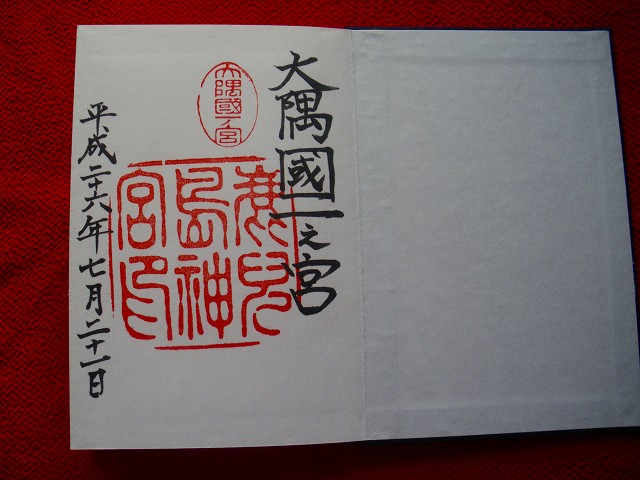 大隅國一之宮
大隅國一ノ宮
鹿児
島神
宮印
平成二十六年七月二十一日